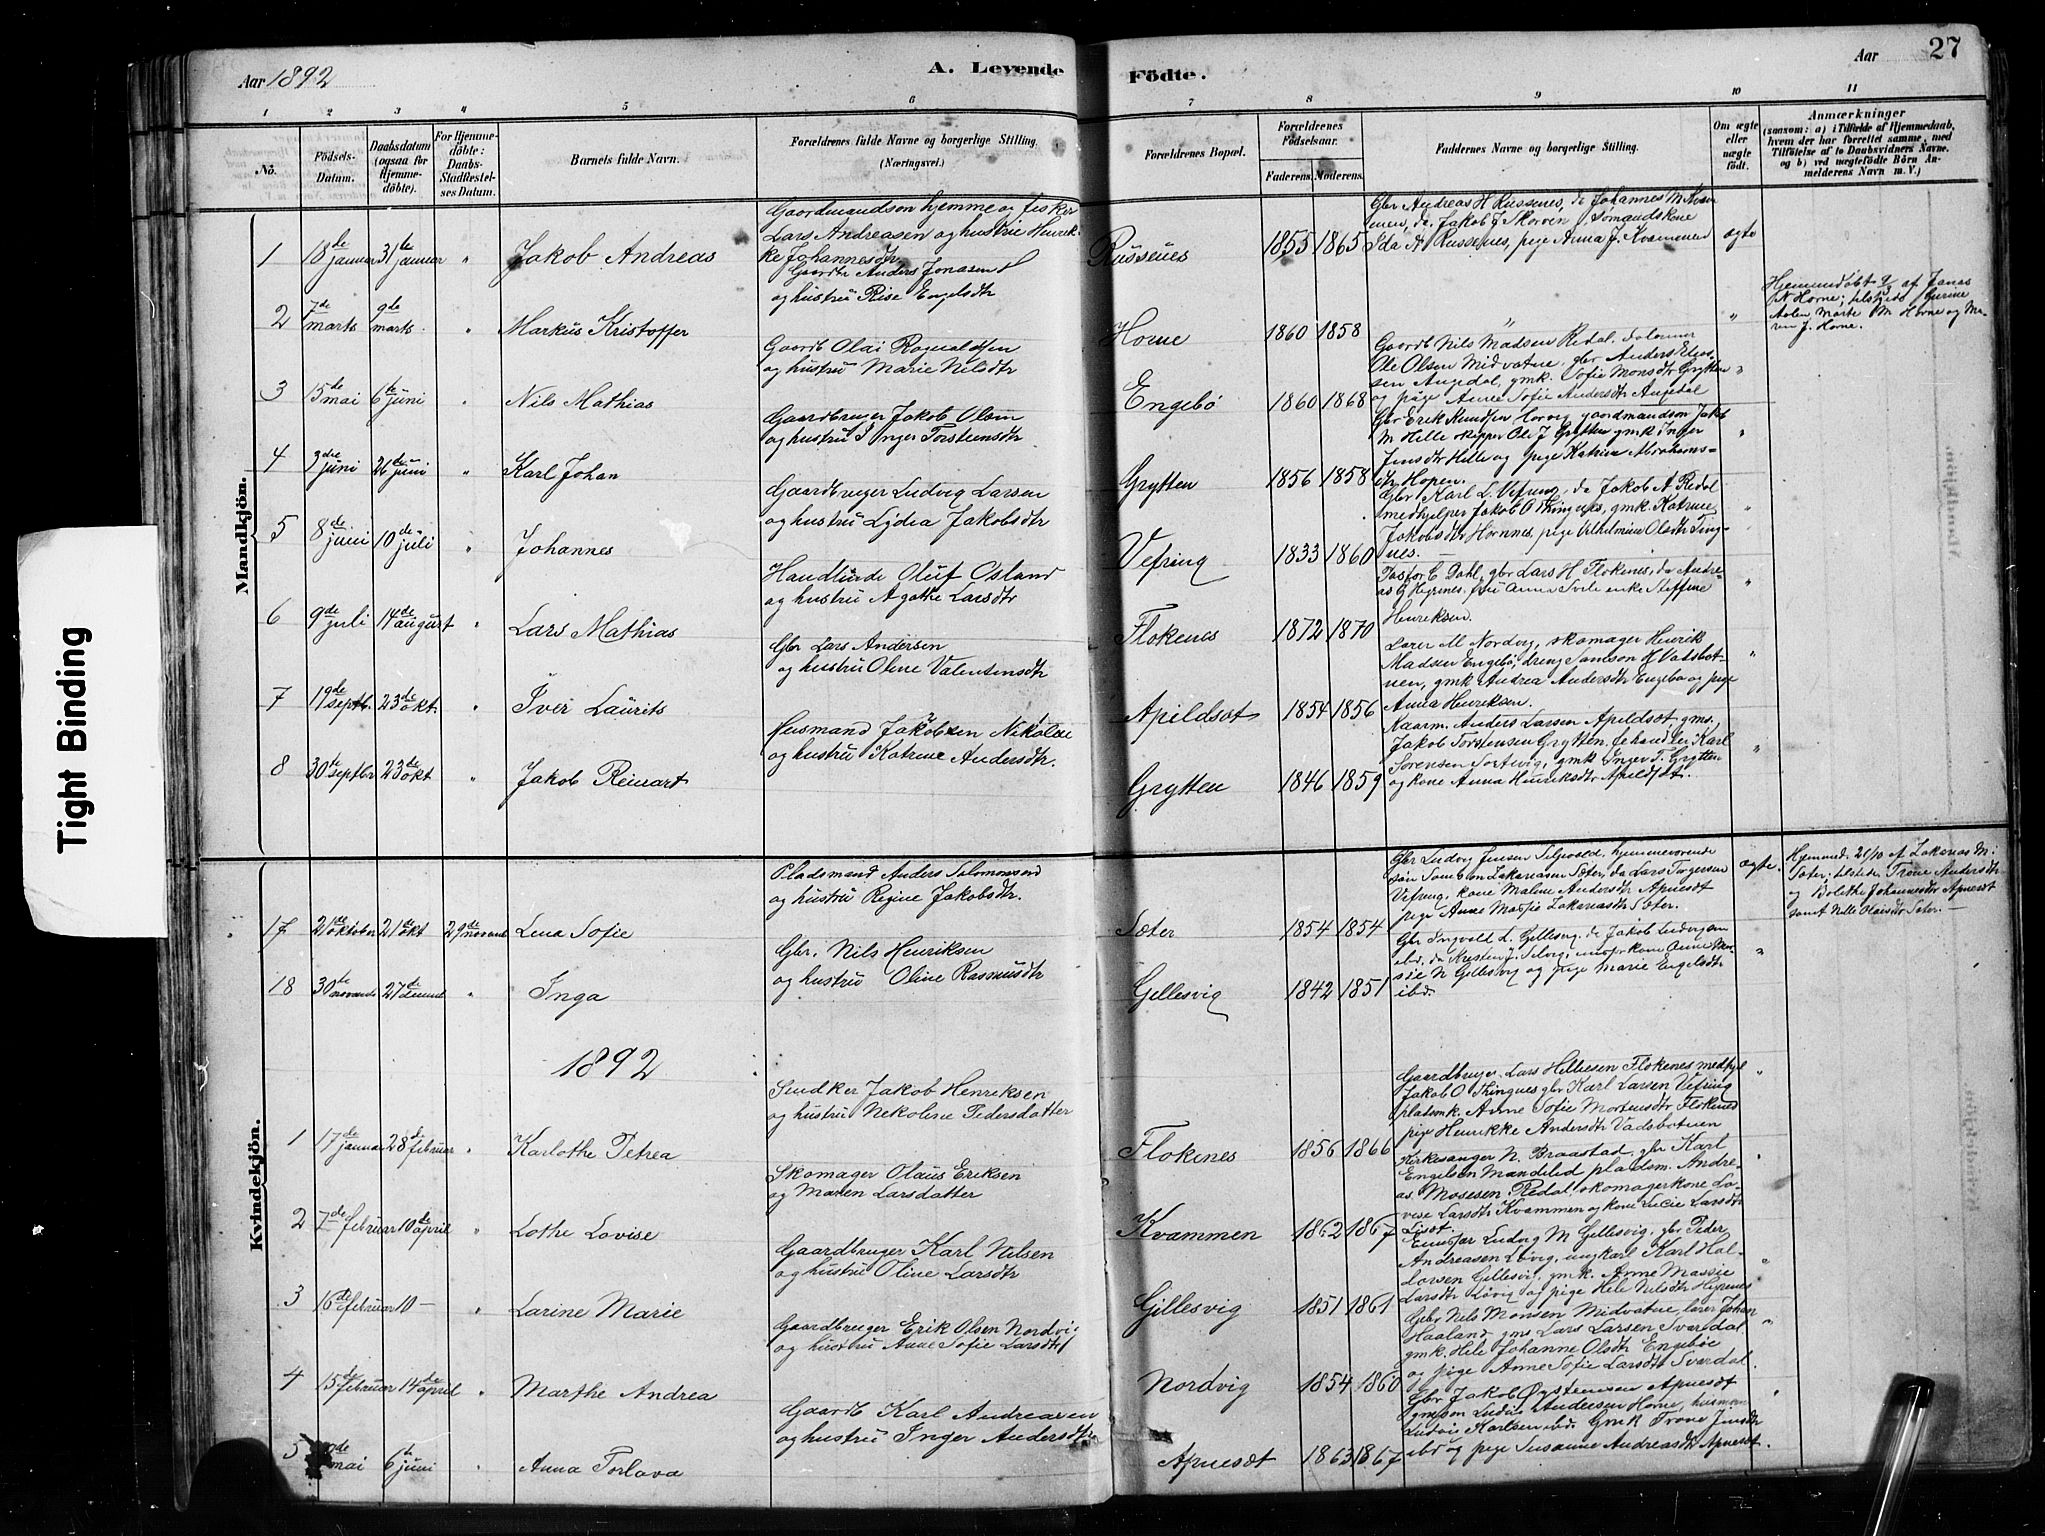 Aar 1892
A. Levende
Födte.
Aar
27
1 2 3 4 5 6 7 8 9 10 11
No.
Födsels-Datum.
Daabsdatum (ogsaa for Hjemmedöbte).
For Hjemmedöbte: Daabs-Stadfestelses Datum.
Barnets fulde Navn.
Forældrenes fulde Navne og borgerlige Stilling. (Næringsvei.)
Forældrenes Bopæl.
Forældrenes Födselsaar.
Faderens. Moderens.
Faddernes Navne og borgerlige Stilling.
Om ægte eller uægte födt.
Anmærkninger
(saasom: a) i Tilfælde af Hjemmedaab, hvem der har forrettet samme, med Tilföielse af to Daabsvidners Navne, og b) ved uægtefödte Börn Anmelderens Navn m. V.)
Mandkjön.
1 18de januar 31te januar " Jakob Andreas
Gaardmandsøn hjemme og fisker
Lars Andreasen og hustru Henrik-
ke Johannesdtr
Russenes 1855 1865
Gbr Andreas H Russenes, do Johannes M
do Jakob J Skorven
Ida A Russenes, pige Anna J. Kvammen
ægte
2 7de marts 9de marts " Markus Kristoffer
Gaardb Anders Jonasen
og hustru Rise Engelsdtr
Horne 1860 1858 "
Hjemmedøbt af Jonas
N Horne; tilstede Gurine
Marte M Horne og Ma-
ren J. Horne.
3 15de mai 6te juni " Nils Mathias
Gaardb Olai Rognaldsen
og hustru Marie Nilsdtr
Engebö 1860 1868
Gaardb Nils Madsen Redal
Ole Olsen Midvatne, gbr Anders
sen Angedal, gmk. Sofie Monsdtr Grytten
og pige Anne Sofie Andersdtr Angedal
4 3die juni 26de juni " Karl Johan
Gaardbruger Jakob Olsen
og hustru Inger Torsteinsdtr
Grytten 1856 1858
Gbr Erik Knudsen Horvig gaardmandsøn Jakob
M Helle skipper Ole J Grytten gmk Inger
Jensdtr Helle og pige Katrine Abrahams-
dtr Hopen.
5 8de juni 10de juli " Johannes
Gaardbruger Ludvig Larsen
og hustru Lydia Jakobsdtr
Vefring 1833 1860
Gbr Karl L. Vefring, do Jakob A Redal
medhjelper Jakob O Thingnes, gmk. Katrine
Jakobsdtr Hornnes, pige Vilhelmine Olsdtr Ting-
nes.
6 9de juli 14de august " Lars Mathias
Handlende Oluf Osland
og hustru Agathe Larsdtr
Flokenes 1872 1870
C Dahl, gbr Lars H Flokenes, do Andre-
as G Hegrenes, fru Anna Svile enke Steffine
Henriksen.
7 19de septbr. 23de okt. " Iver Laurits
Gbr Lars Andersen
og hustru Oline Valentinsdtr
Apildsæt 1854 1856
Lærer M Nordvig, skomager Henrik
Madsen Engebö, dreng Samson H Vadsbot-
nen, gmk Andrea Andersdtr Engebö og pige
Anna Henriksen.
8 30te septbr 23de okt " Jakob Reinart
Husmand Jakobsen Nikolai
og hustru Katrine Andersdtr.
Grytten 1846 1859
Anders Larsen Apildsæt, gms.
Jakob Torstensen Grytten, Karl
Sörensen gmk Inger T. Grytten
og kone Anna Henriksdtr Apildsæt.
Kvindekjön.
17 21de oktober 21de okt 29de novemb Lena Sofie
Pladsmand Anders Salomonsen
og hustru Regine Jakobsdtr.
Sæter 1854 1854
Gbr Ludvig Jensen hjemmeværende
søn Samson Zakariasen Sæter, do Lars Torgersen
Vefring, kone Malene Andersdtr Apnesæt
pige Anne Massie Zakariasdtr Sæter.
ægte.
Hjemmed. 21/10 af Zakarias M.
Sæter; tilstede Trone Andersdtr
og Bolethe Johannesdtr Apnesæt
samt Nille Olaisdtr Sæter. —
18 30te novemb 27de decemb " Inga
Gbr. Nils Henriksen
og hustru Oline Rasmusdtr
Gillesvig 1842 1851
Gbr Ingvald L. Gillesvig, do Jakob Ludvigsen
ibd. do Kristen J. Selvig, kone Anne Mas-
sie N Gillesvig og pige Marie Engelsdtr
ibd.
1892
1 17de januar 28de februar " Karlothe Petrea
Jakob Henriksen
og hustru Nekoline Pedersdatter
Flokenes 1856 1866
Gaardbruger Lars Hellesen Flokenes medhjel
Jakob O Thingnes gbr Karl Larsen Vefring
pladsmk. Anne Sofie Mortensdtr Flokenes
pige Henrikke Andersdtr Vadsbotnen
2 7de februar 10de april " Lothe Lovise
Skomager Olaus Eriksen
og Maren Larsdatter
Kvammen 1862 1867
Kirkesanger N. Braastad, gbr Karl
Engelsen Mandelid pladsm. Andre-
as Mosesen Redal, skomagerkone Lo-
vise Larsdtr Kvammen og kone Lucie Larsdtr
3 16de februar 10 — " Larine Marie
Gaardbruger Karl Nilsen
og hustru Oline Larsdtr
Gillesvig 1851 1861
Ludvig M Gillesvig, gbr Peder
Andreasen Lövig, ungkarl Karl Hal-
Larsen Gillesvig, gmk. Anne Massie
Larsdtr Lövig og pige Hele Nilsdtr Hegrenes
4 15de februar 14de april " Marthe Andrea
Gaardbruger Erik Olsen Nordvig
og hustru Anne Sofie Larsdtr
Nordvig 1854 1860
Gbr Nils Monsen Midvatne, lærer Johan
Haaland, gms Lars Larsen Svardal
gmk. Hele Johanne Olsdtr Engeböe
og pige Anne Sofie Larsdtr Svardal.
5 mai 6te juni " Anna Torlava
Gaardb Karl Andreasen
og hustru Inger Andersdtr
Apnesæt 1863 1867
Gbr Jakob Öystensen Apnesæt
gmsøn Ludvig Andersen Horne, husman
Ludvig Karlsen ibd. Gmk Trone Jensdtr
ibd og pige Susanne Andreasdtr Apnesæt.
Tight Binding